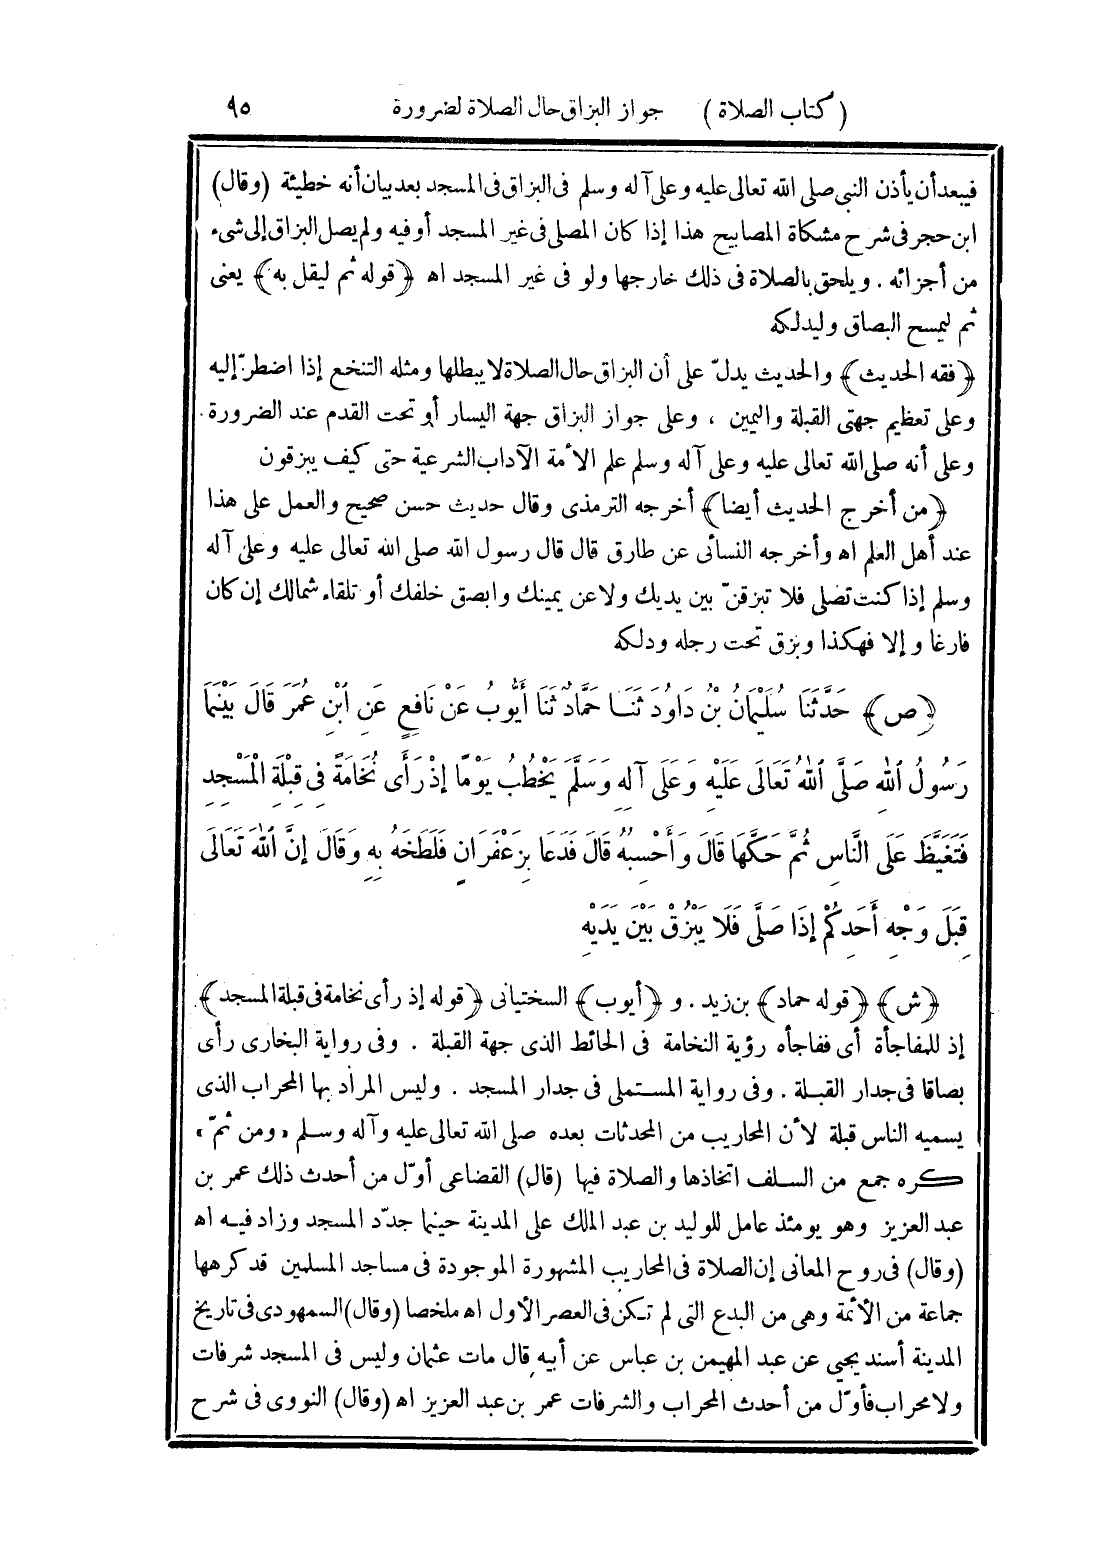 (كتاب الصلاة) جواز البزاق حال الصلاة لضرورة ٩٥
فيبعد أن يأذن النبى صلى الله تعالى عليه وعلى آله وسلم فى البزاق فى المسجد بعد بيان أنه خطيئة (وقال)
ابن حجر فى شرح مشكاة المصابيح هذا إذا كان المصلى فى غير المسجد أو فيه ولم يصل البزاق إلى شىء
من أجزائه . ويلحق بالصلاة فى ذلك خارجها ولو فى غير المسجد اه ﴿قوله ثم ليقل به﴾ يعنى
ثم ليمسح البصاق وليدلكه
﴿فقه الحديث﴾ والحديث يدلّ على أن البزاق حال الصلاة لا يبطلها ومثله التنخع إذا اضطرّ إليه
وعلى تعظيم جهتى القبلة واليمين ، وعلى جواز البزاق جهة اليسار أو تحت القدم عند الضرورة .
وعلى أنه صلى الله تعالى عليه وعلى آله وسلم علم الأمة الآداب الشرعية حتى كيف يبزقون
﴿من أخرج الحديث أيضا﴾ أخرجه الترمذى وقال حديث حسن صحيح والعمل على هذا
عند أهل العلم اه وأخرجه النسائى عن طارق قال قال رسول الله صلى الله تعالى عليه وعلى آله
وسلم إذا كنت تصلى فلا تبزقنّ بين يديك ولا عن يمينك وابصق خلفك أو تلقاء شمالك إن كان
فارغا وإلا فهكذا وبزق تحت رجله ودلكه
﴿ص﴾ حَدَّثَنَا سُلَيْمَانُ بْنُ دَاوُدَ ثَنَا حَمَّادٌ ثَنَا أَيُّوبُ عَنْ نَافِعٍ عَنِ ابْنِ عُمَرَ قَالَ بَيْنَمَا
رَسُولُ اللهِ صَلَّى اللهُ تَعَالَى عَلَيْهِ وَعَلَى آلِهِ وَسَلَّمَ يَخْطُبُ يَوْمًا إِذْ رَأَى نُخَامَةً فِى قِبْلَةِ الْمَسْجِدِ
فَتَغَيَّظَ عَلَى النَّاسِ ثُمَّ حَكَّهَا قَالَ وَأَحْسِبُهُ قَالَ فَدَعَا بِزَعْفَرَانٍ فَلَطَخَهُ بِهِ وَقَالَ إِنَّ اللهَ تَعَالَى
قِبَلَ وَجْهِ أَحَدِكُمْ إِذَا صَلَّى فَلَا يَبْزُقْ بَيْنَ يَدَيْهِ
﴿ش﴾ ﴿قوله حماد﴾ بن زيد . و ﴿أيوب﴾ السختيانى ﴿قوله إذ رأى نخامة فى قبلة المسجد﴾ .
إذ للمفاجأة أى ففاجأه رؤية النخامة فى الحائط الذى جهة القبلة . وفى رواية البخارى رأى
بصاقا فى جدار القبلة . وفى رواية المستملى فى جدار المسجد . وليس المراد بها المحراب الذى
يسميه الناس قبلة لأن المحاريب من المحدثات بعده صلى الله تعالى عليه وآله وسلم «ومن ثمّ»
كره جمع من السلف اتخاذها والصلاة فيها (قال) القضاعى أوّل من أحدث ذلك عمر بن
عبد العزيز وهو يومئذ عامل للوليد بن عبد الملك على المدينة حينما جدّد المسجد وزاد فيه اه
(وقال) فى روح المعانى إن الصلاة فى المحاريب المشهورة الموجودة فى مساجد المسلمين قد كرهها
جماعة من الأئمة وهى من البدع التى لم تكن فى العصر الأول اه ملخصا (وقال) السمهودى فى تاريخ
المدينة أسند يحيى عن عبد المهيمن بن عباس عن أبيه قال مات عثمان وليس فى المسجد شرفات
ولا محراب فأوّل من أحدث المحراب والشرفات عمر بن عبد العزيز اه (وقال) النووى فى شرح